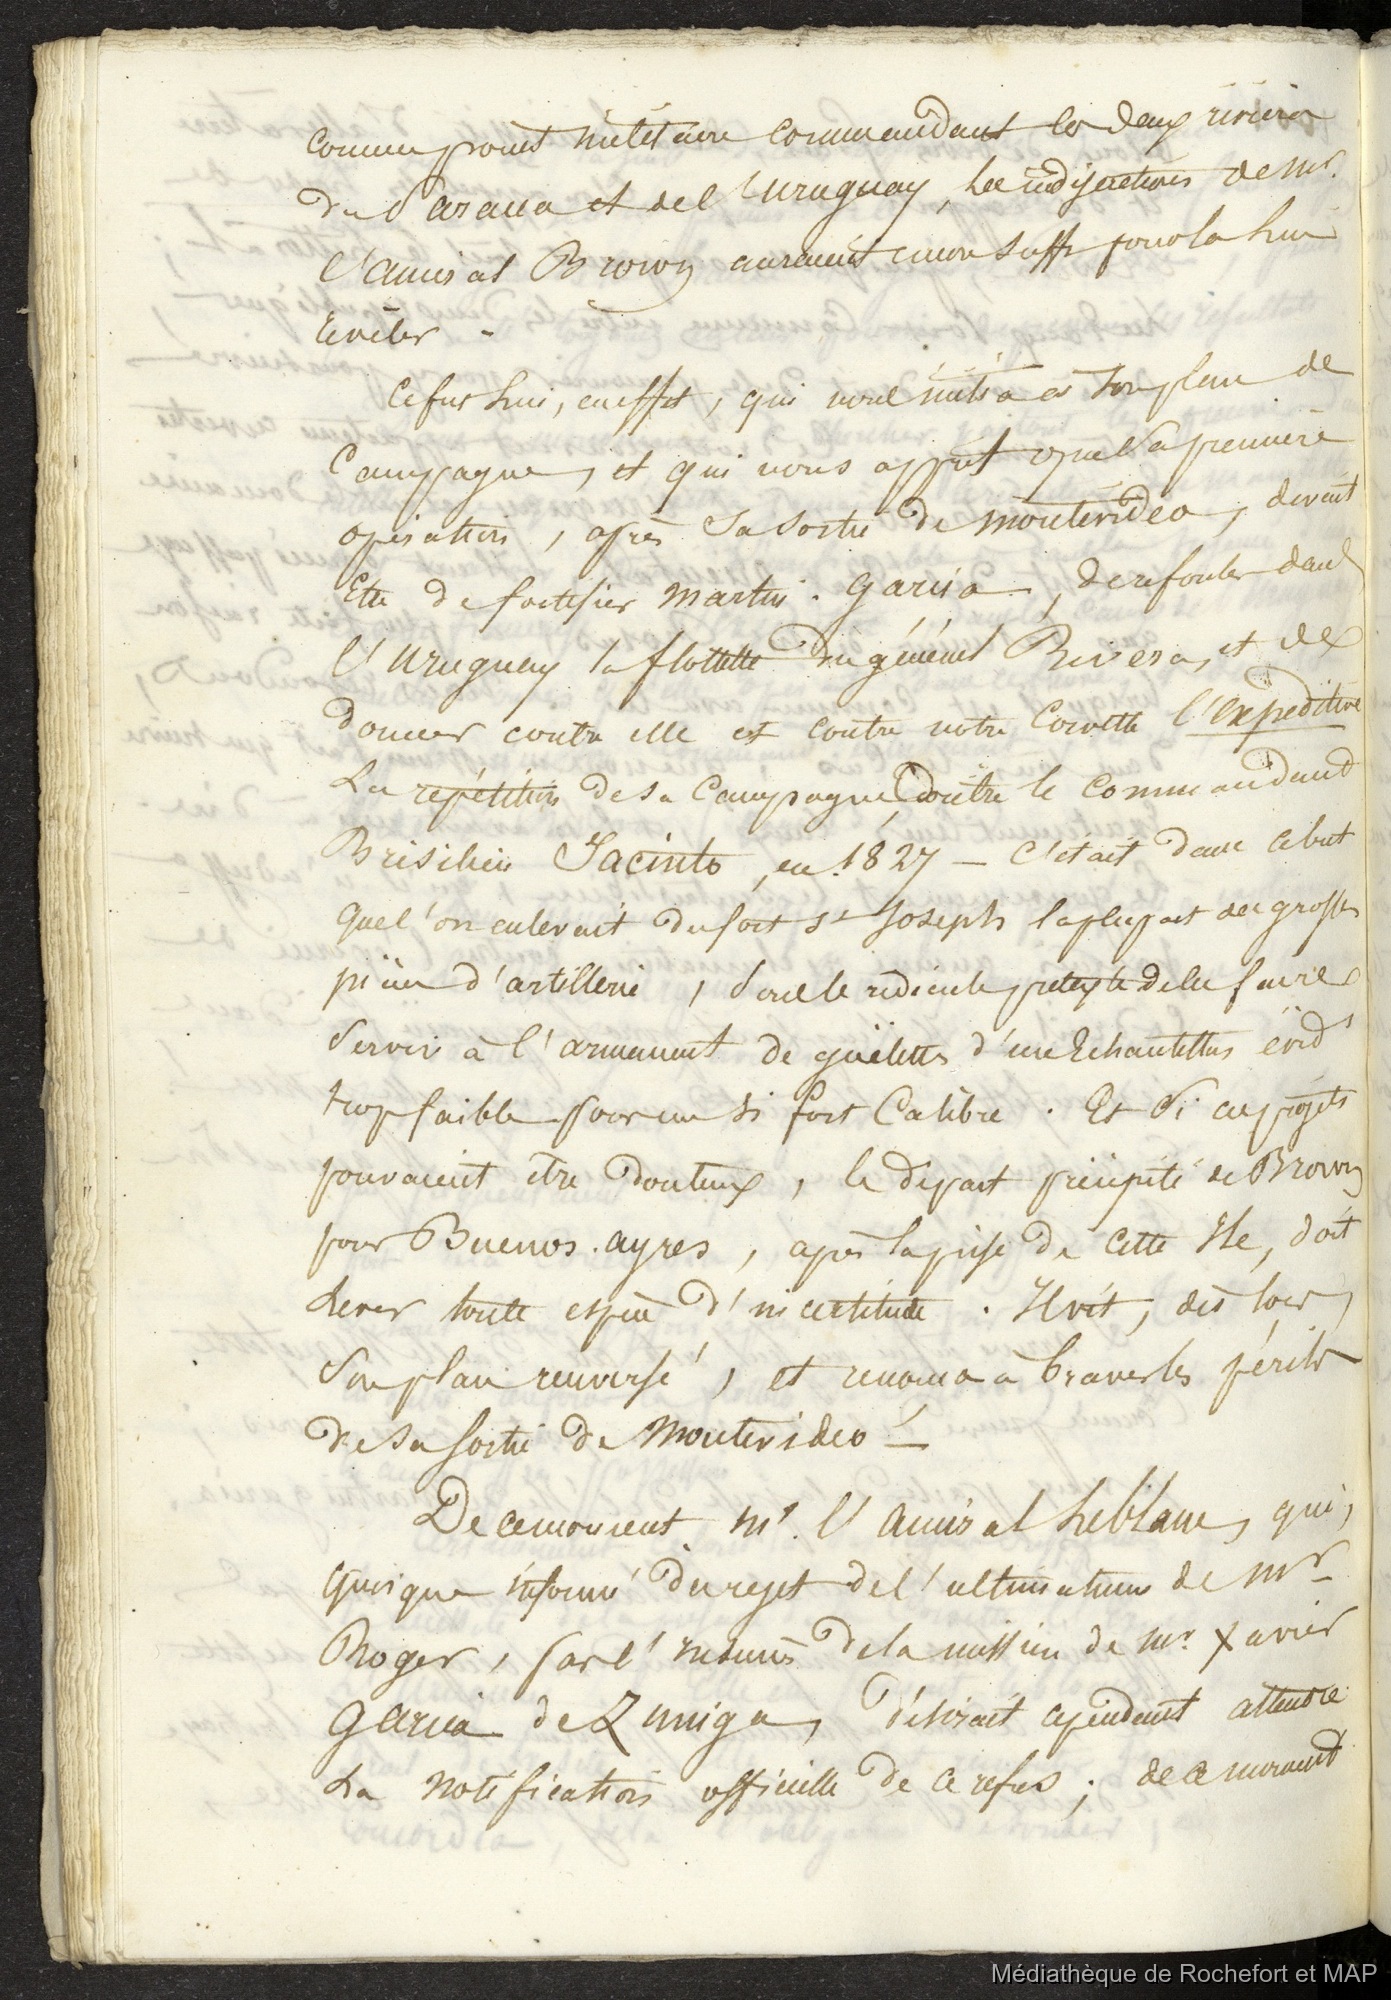 comme point militaire commandant les deux rivières
du Parana et de l'Uruguay, les indiscrétions de Mr.
l'amiral Brown auraient suffi pour la lui
révéler.
Ce fut lui, en effet, qui nous initia à son plan de
Campagne, et qui nous apprit que sa première
opération, après sa sortie de Montévideo, devait
Etre de fortifier Martin. Garcia, de refouler dans
l'Uruguay la flottille du général Rivera, et de
donner contre elle et contre notre Corvette l'Expéditive
La répétition de sa Campagne contre le commandant
Brésilien Jacinto, en 1827 — C'était dans ce but
que l'on enlevait du fort St Joseph la plupart des grosses
pièces d'artillerie, sous le ridicule prétexte de les faire
Servir à l'armement de goëlettes d'une Echantillon évidt
trop faible pour un si fort Calibre. Et si ces projets
pouvaient être douteux, le départ précipité de Brown
pour Buenos. ayres, après la prise de cette Ile, doit
lever toute espèce d'incertitude. Il vit, dès lors,
Son plan renversé, et renonça à braver les périls
de sa sortie de Montevideo —
De ce moment Mr. l'amiral Leblanc, qui,
quoique informé du rejet de l'ultimatum de Mr
Roger, par l'insuccès de la mission de Mr. Xavier
Garcia de Zuniga, désirait cependant attendre
La notification officielle de ce refus; de ce moment
Médiathèque de Rochefort et MAP